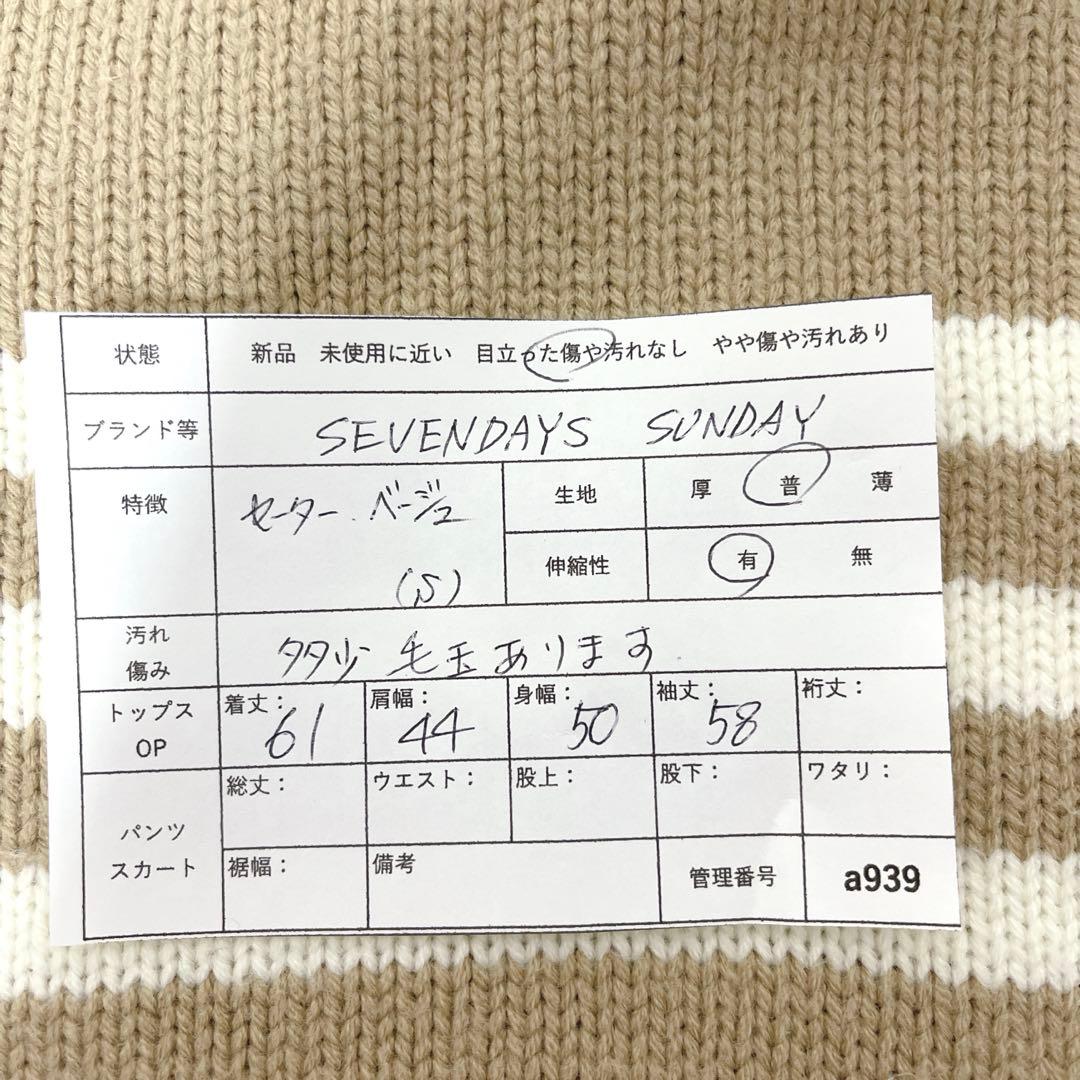 状態 新品 未使用に近い 目立った傷や汚れなし やや傷や汚れあり
ブランド等 SEVENDAYS SUNDAY
特徴 セーター ベージュ (S) 生地 厚 普 薄
伸縮性 有 無
汚れ
傷み 多少 毛玉あります
トップス
OP 着丈: 61 肩幅: 44 身幅: 50 袖丈: 58 裄丈:
パンツ
スカート 総丈: ウエスト: 股上: 股下: ワタリ:
裾幅: 備考 管理番号 a939